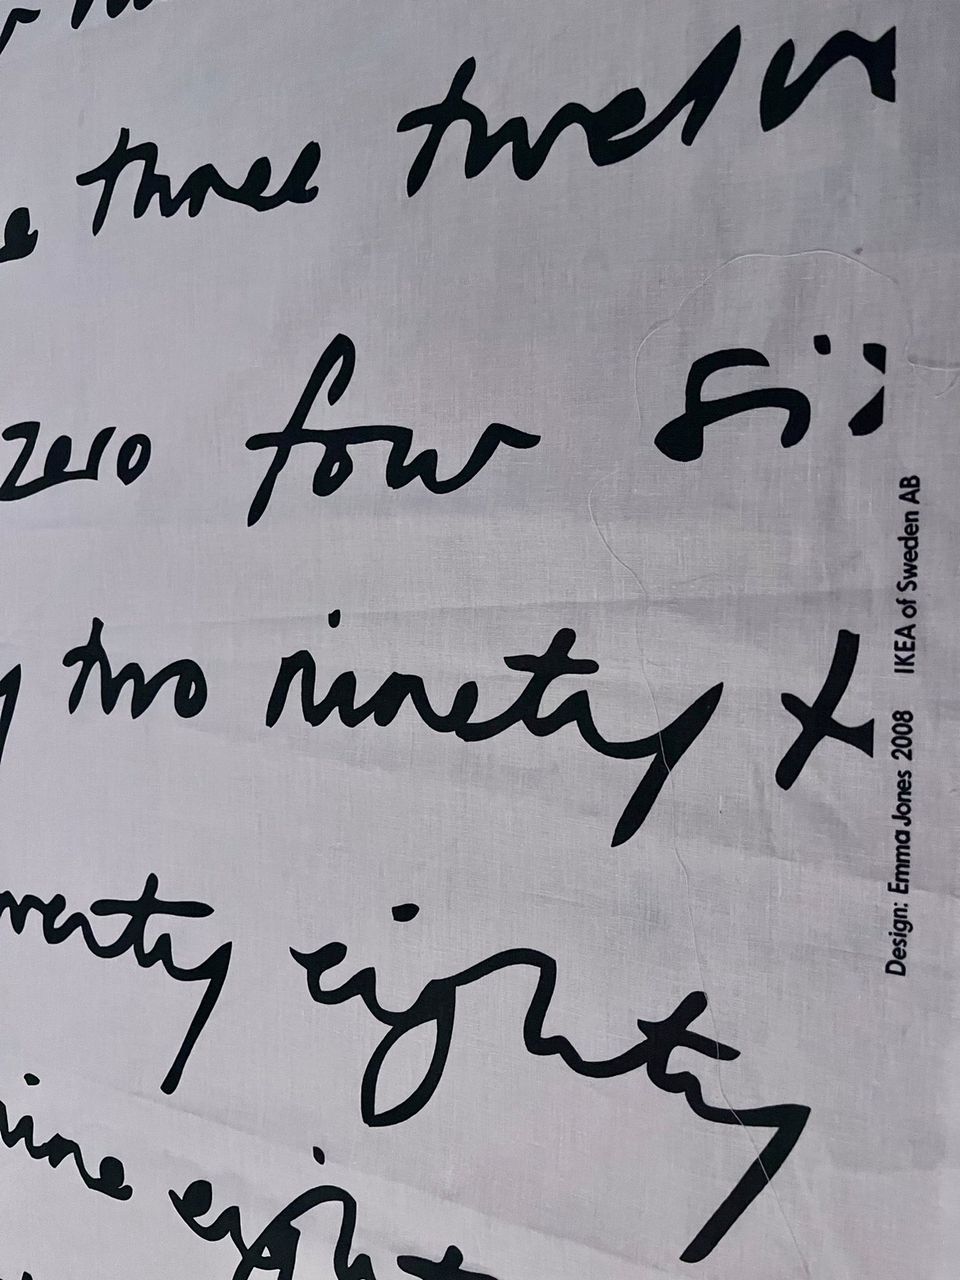 three twelv
zero four si
two ninety t
twenty eighty
nine eight
Design: Emma Jones 2008 IKEA of Sweden AB